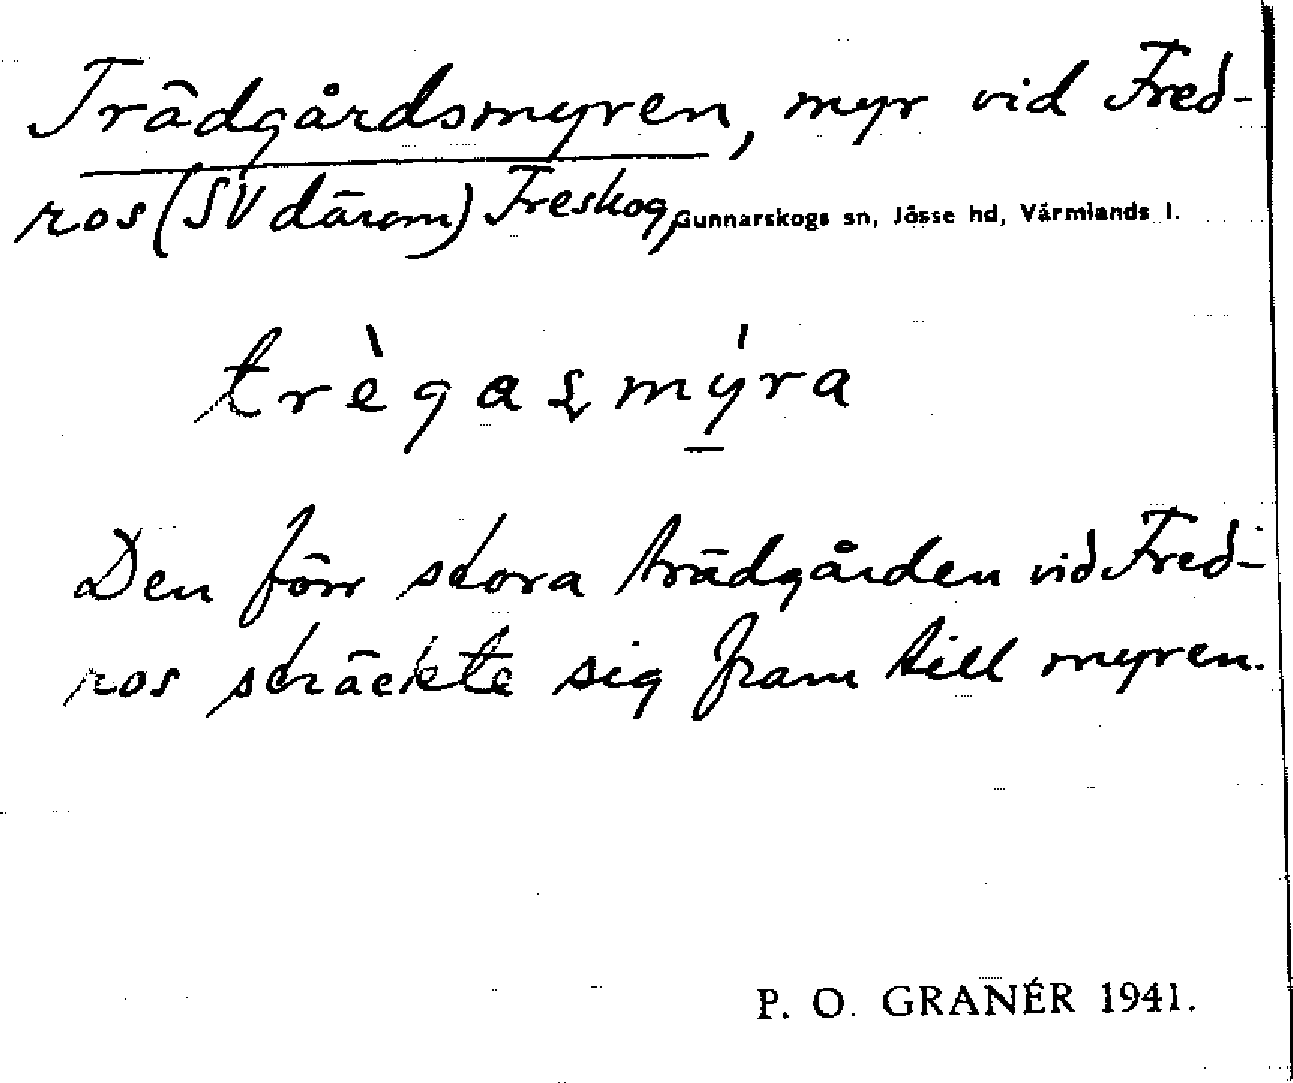 Trädgårdsmyren, myr vid Fred-
ros (SV därom) Freskog, Gunnarskogs sn, Jösse hd, Värmlands l.
trègaʂmýra
Den förr stora trädgården vid Fred-
ros sträckte sig fram till myren.
P. O. GRANÉR 1941.